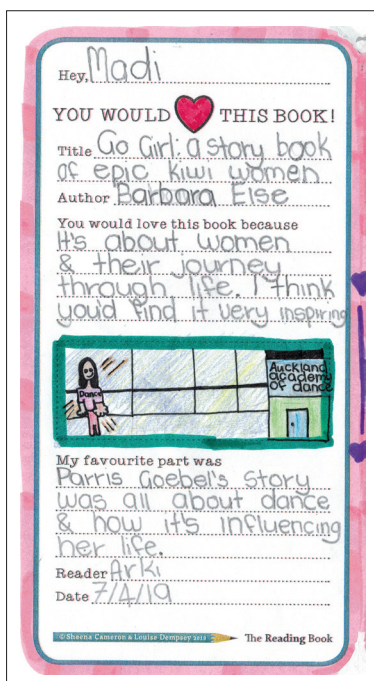 Hey, Madi
YOU WOULD THIS BOOK!
Title Go Girl: a story book
of epic kiwi women
Author Barbara Else
You would love this book because
It's about women
& their journey
through life. I think
you'd find it very inspiring
Dance
Auckland
academy
of dance
My favourite part was
Parris Goebel's story
was all about dance
& how it's influencing
her life.
Reader Arki
Date 7/4/19
© Sheena Cameron & Louise Dempsey 2019 The Reading Book